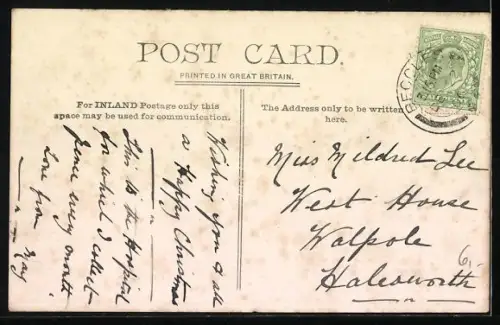 POST CARD.
PRINTED IN GREAT BRITAIN.
For INLAND Postage only this
space may be used for communication.
The Address only to be written
here.
Wishing you & all
a Happy Christmas
This is the Hospital
for which I collect
pence every month.
Love from May
Miss Mildred Lee
West House
Walpole
Halesworth
6/-
BECC